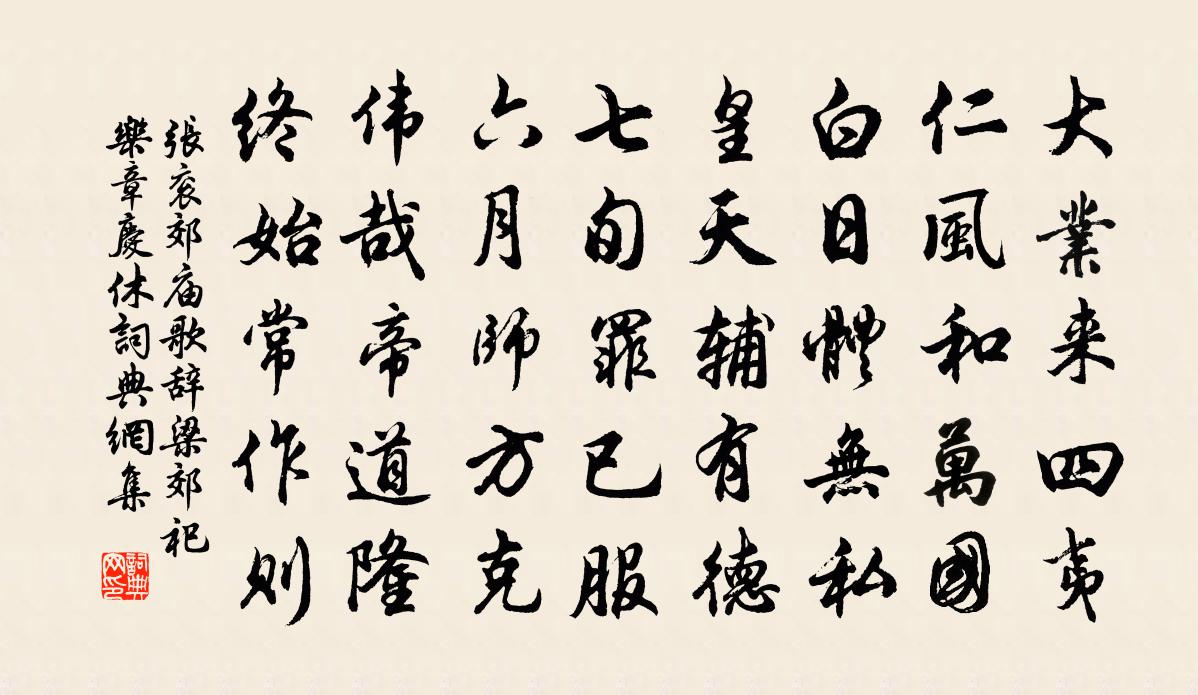 大業来四夷
仁風和萬國
白日體無私
皇天辅有德
七旬罪已服
六月师方克
伟哉帝道隆
终始常作则
張衮郊庙歌辞梁郊祀
樂章慶休詞典網集
詞典
网印